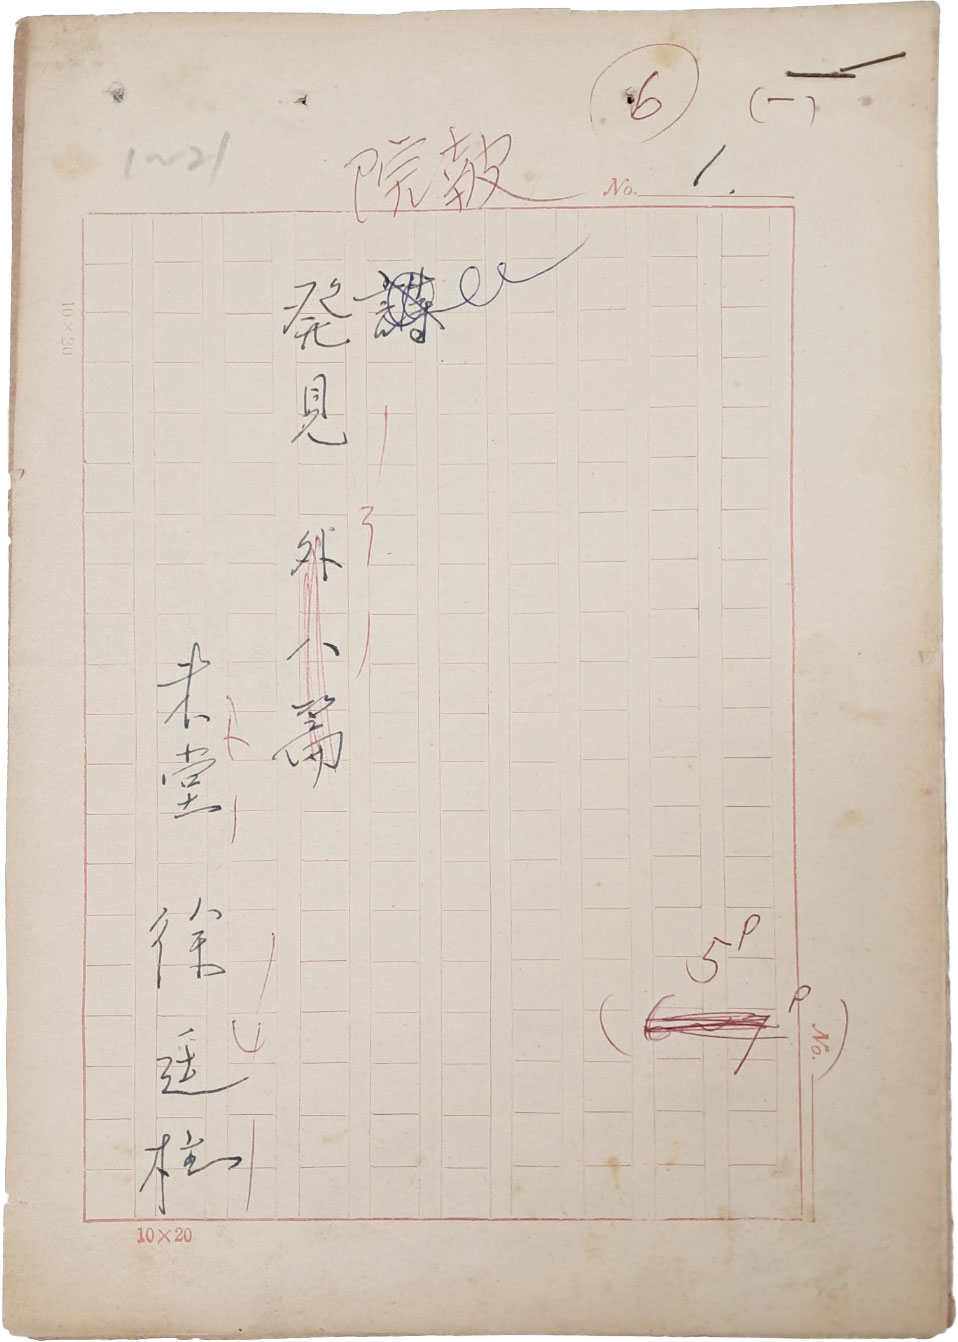 6
(一)
1~21
院報
No. 1.
発見 外八篇
未堂 徐廷柱
5P
P
No.
10×20
10×20